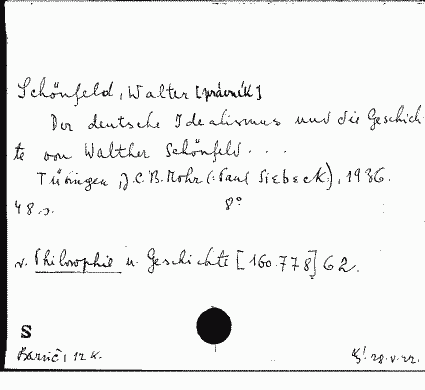 Schönfeld, Walter [právník]
Der deutsche Idealismus und die Geschich-
te von Walther Schönfeld...
Tübingen, J.C.B. Mohr (: Paul Siebeck:), 1936.
48 s. 8°
v. Philosophie u. Geschichte [160.778] 62.
S
Barvič, 12 K.